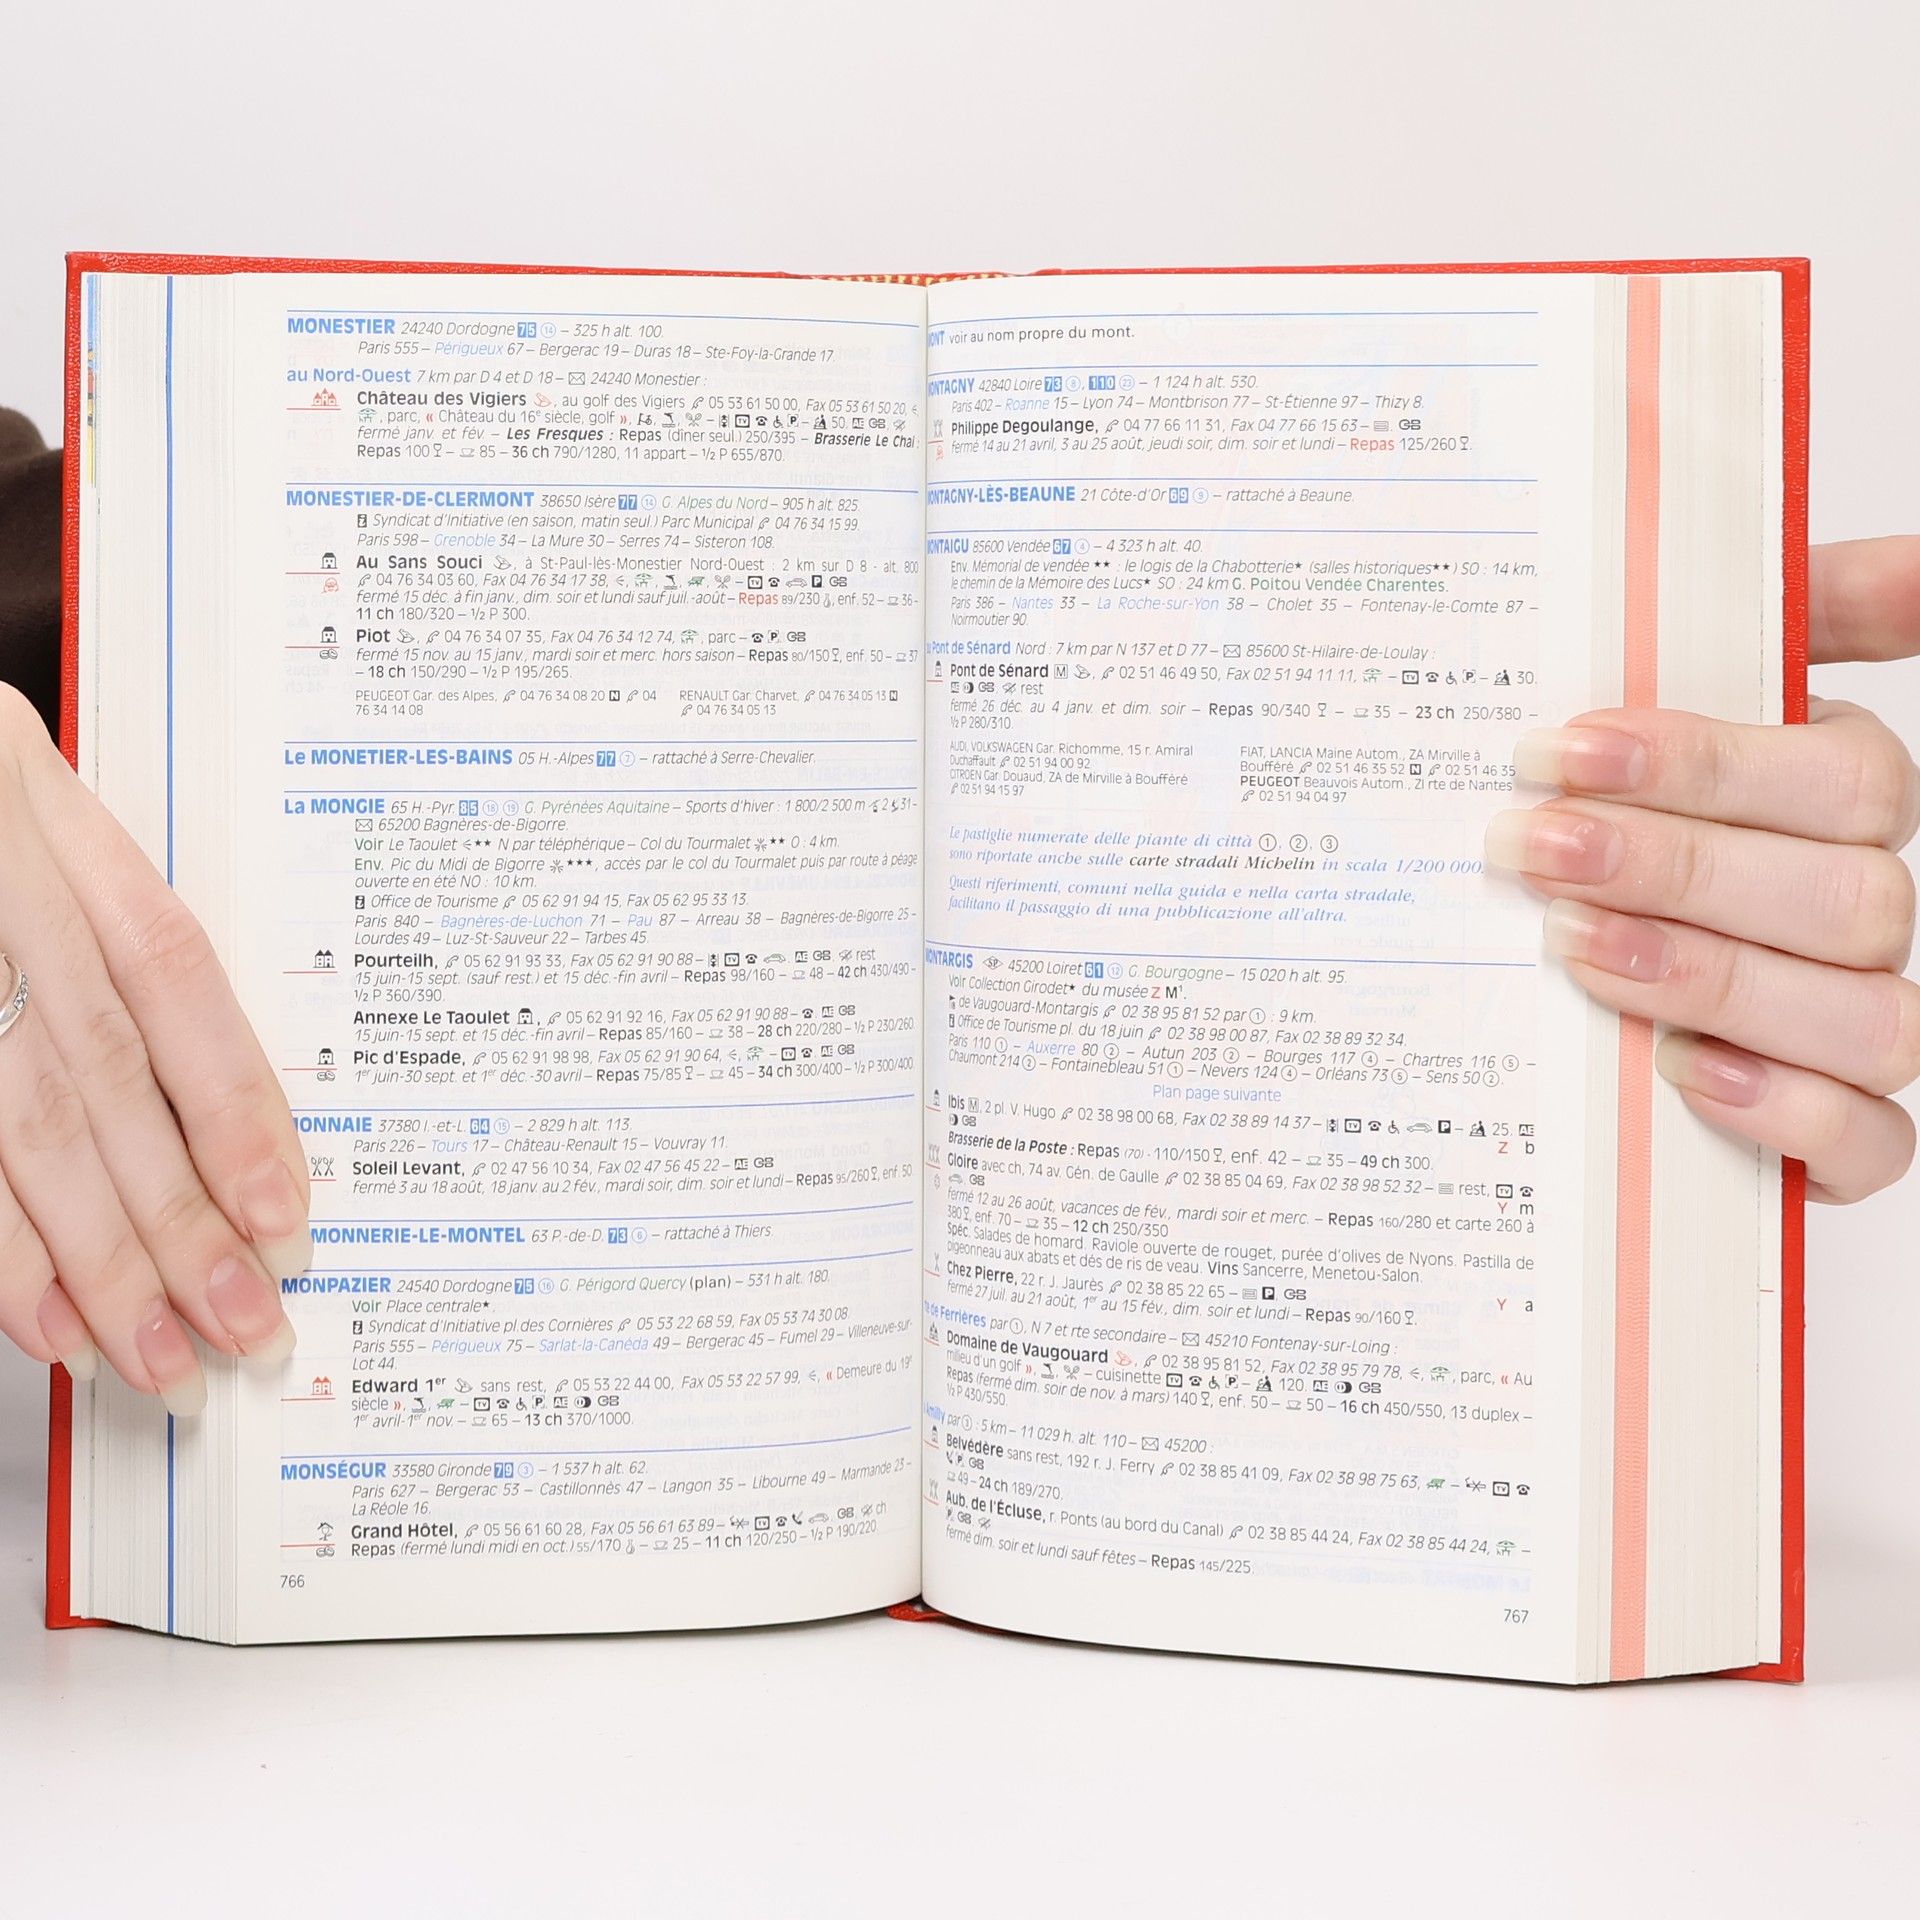 MONESTIER 24240 Dordogne 75 14 – 325 h alt. 100.
Paris 555 – Périgueux 67 – Bergerac 19 – Duras 18 – Ste-Foy-la-Grande 17.
au Nord-Ouest 7 km par D 4 et D 18 – 24240 Monestier :
Château des Vigiers, au golf des Vigiers 05 53 61 50 00, Fax 05 53 61 50 20,
, parc, « Château du 16e siècle, golf », – 50.
fermé janv. et fév. – Les Fresques : Repas (dîner seul.) 250/395 – Brasserie Le Chai :
Repas 100 – 85 – 36 ch 790/1280, 11 appart – ½ P 655/870.
MONESTIER-DE-CLERMONT 38650 Isère 77 14 G. Alpes du Nord – 905 h alt. 825.
Syndicat d'Initiative (en saison, matin seul.) Parc Municipal 04 76 34 15 99.
Paris 598 – Grenoble 34 – La Mure 30 – Serres 74 – Sisteron 108.
Au Sans Souci, à St-Paul-lès-Monestier Nord-Ouest : 2 km sur D 8 - alt. 800
04 76 34 03 60, Fax 04 76 34 17 38,
fermé 15 déc. à fin janv., dim. soir et lundi sauf juil.-août – Repas 89/230, enf. 52 – 36 -
11 ch 180/320 – ½ P 300.
Piot, 04 76 34 07 35, Fax 04 76 34 12 74, , parc –
fermé 15 nov. au 15 janv., mardi soir et merc. hors saison – Repas 80/150, enf. 50 – 37
– 18 ch 150/290 – ½ P 195/265.
PEUGEOT Gar. des Alpes, 04 76 34 08 20 N 04 76 34 14 08
RENAULT Gar. Charvet, 04 76 34 05 13 N 04 76 34 05 13
Le MONETIER-LES-BAINS 05 H.-Alpes 77 7 – rattaché à Serre-Chevalier.
La MONGIE 65 H.-Pyr. 85 18 19 G. Pyrénées Aquitaine – Sports d'hiver : 1 800/2 500 m 2 31 -
65200 Bagnères-de-Bigorre.
Voir Le Taoulet ★★ N par téléphérique – Col du Tourmalet ★★ O : 4 km.
Env. Pic du Midi de Bigorre ★★★, accès par le col du Tourmalet puis par route à péage
ouverte en été NO : 10 km.
Office de Tourisme 05 62 91 94 15, Fax 05 62 95 33 13.
Paris 840 – Bagnères-de-Luchon 71 – Pau 87 – Arreau 38 – Bagnères-de-Bigorre 25 -
Lourdes 49 – Luz-St-Sauveur 22 – Tarbes 45.
Pourteilh, 05 62 91 93 33, Fax 05 62 91 90 88 – rest
15 juin-15 sept. (sauf rest.) et 15 déc.-fin avril – Repas 98/160 – 48 – 42 ch 430/490 -
½ P 360/390.
Annexe Le Taoulet, 05 62 91 92 16, Fax 05 62 91 90 88 –
15 juin-15 sept. et 15 déc.-fin avril – Repas 85/160 – 38 – 28 ch 220/280 – ½ P 230/260.
Pic d'Espade, 05 62 91 98 98, Fax 05 62 91 90 64,
1er juin-30 sept. et 1er déc.-30 avril – Repas 75/85 – 45 – 34 ch 300/400 – ½ P 300/400.
ONNAIE 37380 I.-et-L. 64 15 – 2 829 h alt. 113.
Paris 226 – Tours 17 – Château-Renault 15 – Vouvray 11.
Soleil Levant, 02 47 56 10 34, Fax 02 47 56 45 22 –
fermé 3 au 18 août, 18 janv. au 2 fév., mardi soir, dim. soir et lundi – Repas 95/260, enf. 50
MONNERIE-LE-MONTEL 63 P.-de-D. 73 6 – rattaché à Thiers.
MONPAZIER 24540 Dordogne 75 16 G. Périgord Quercy (plan) – 531 h alt. 180.
Voir Place centrale★.
Syndicat d'Initiative pl. des Cornières 05 53 22 68 59, Fax 05 53 74 30 08.
Paris 555 – Périgueux 75 – Sarlat-la-Canéda 49 – Bergerac 45 – Fumel 29 – Villeneuve-sur-
Lot 44.
Edward 1er sans rest, 05 53 22 44 00, Fax 05 53 22 57 99, , « Demeure du 19e
siècle »,
1er avril-1er nov. – 65 – 13 ch 370/1000.
MONSÉGUR 33580 Gironde 79 3 – 1 537 h alt. 62.
Paris 627 – Bergerac 53 – Castillonnès 47 – Langon 35 – Libourne 49 – Marmande 23 -
La Réole 16.
Grand Hôtel, 05 56 61 60 28, Fax 05 56 61 63 89 – ch
Repas (fermé lundi midi en oct.) 55/170 – 25 – 11 ch 120/250 – ½ P 190/220.
766
ONT voir au nom propre du mont.
ONTAGNY 42840 Loire 73 8, 110 23 – 1 124 h alt. 530.
Paris 402 – Roanne 15 – Lyon 74 – Montbrison 77 – St-Étienne 97 – Thizy 8.
Philippe Degoulange, 04 77 66 11 31, Fax 04 77 66 15 63 –
fermé 14 au 21 avril, 3 au 25 août, jeudi soir, dim. soir et lundi – Repas 125/260.
ONTAGNY-LÈS-BEAUNE 21 Côte-d'Or 69 9 – rattaché à Beaune.
ONTAIGU 85600 Vendée 67 4 – 4 323 h alt. 40.
Env. Mémorial de vendée ★★ : le logis de la Chabotterie★ (salles historiques★★) SO : 14 km,
le chemin de la Mémoire des Lucs★ SO : 24 km G. Poitou Vendée Charentes.
Paris 386 – Nantes 33 – La Roche-sur-Yon 38 – Cholet 35 – Fontenay-le-Comte 87 –
Noirmoutier 90.
Pont de Sénard Nord : 7 km par N 137 et D 77 – 85600 St-Hilaire-de-Loulay :
Pont de Sénard M, 02 51 46 49 50, Fax 02 51 94 11 11, – 30.
rest
fermé 26 déc. au 4 janv. et dim. soir – Repas 90/340 – 35 – 23 ch 250/380 –
½ P 280/310.
AUDI, VOLKSWAGEN Gar. Richomme, 15 r. Amiral
Duchaffault 02 51 94 00 92
CITROEN Gar. Douaud, ZA de Mirville à Boufféré
02 51 94 15 97
FIAT, LANCIA Maine Autom., ZA Mirville à
Boufféré 02 51 46 35 52 N 02 51 46 35
PEUGEOT Beauvois Autom., ZI rte de Nantes
02 51 94 04 97
Le pastiglie numerate delle piante di città 1, 2, 3
sono riportate anche sulle carte stradali Michelin in scala 1/200 000.
Questi riferimenti, comuni nella guida e nella carta stradale,
facilitano il passaggio di una pubblicazione all'altra.
ONTARGIS SP 45200 Loiret 61 12 G. Bourgogne – 15 020 h alt. 95.
Voir Collection Girodet★ du musée Z M1.
de Vaugouard-Montargis 02 38 95 81 52 par 1 : 9 km.
Office de Tourisme pl. du 18 juin 02 38 98 00 87, Fax 02 38 89 32 34.
Paris 110 1 – Auxerre 80 2 – Autun 203 2 – Bourges 117 4 – Chartres 116 5 –
Chaumont 214 2 – Fontainebleau 51 1 – Nevers 124 4 – Orléans 73 5 – Sens 50 2.
Plan page suivante
Ibis M, 2 pl. V. Hugo 02 38 98 00 68, Fax 02 38 89 14 37 – 25.
Z b
Brasserie de la Poste : Repas (70) - 110/150, enf. 42 – 35 – 49 ch 300.
Gloire avec ch, 74 av. Gén. de Gaulle 02 38 85 04 69, Fax 02 38 98 52 32 – rest,
Y m
fermé 12 au 26 août, vacances de fév., mardi soir et merc. – Repas 160/280 et carte 260 à
380, enf. 70 – 35 – 12 ch 250/350
Spéc. Salades de homard. Raviole ouverte de rouget, purée d'olives de Nyons. Pastilla de
pigeonneau aux abats et dés de ris de veau. Vins Sancerre, Menetou-Salon.
Chez Pierre, 22 r. J. Jaurès 02 38 85 22 65 –
Y a
fermé 27 juil. au 21 août, 1er au 15 fév., dim. soir et lundi – Repas 90/160.
de Ferrières par 1, N 7 et rte secondaire – 45210 Fontenay-sur-Loing :
Domaine de Vaugouard, 02 38 95 81 52, Fax 02 38 95 79 78, , parc, « Au
milieu d'un golf », – cuisinette – 120.
Repas (fermé dim. soir de nov. à mars) 140, enf. 50 – 50 – 16 ch 450/550, 13 duplex –
½ P 430/550.
Amilly par 3 : 5 km – 11 029 h. alt. 110 – 45200 :
Belvédère sans rest, 192 r. J. Ferry 02 38 85 41 09, Fax 02 38 98 75 63, –
49 – 24 ch 189/270.
Aub. de l'Écluse, r. Ponts (au bord du Canal) 02 38 85 44 24, Fax 02 38 85 44 24, –
fermé dim. soir et lundi sauf fêtes – Repas 145/225.
767